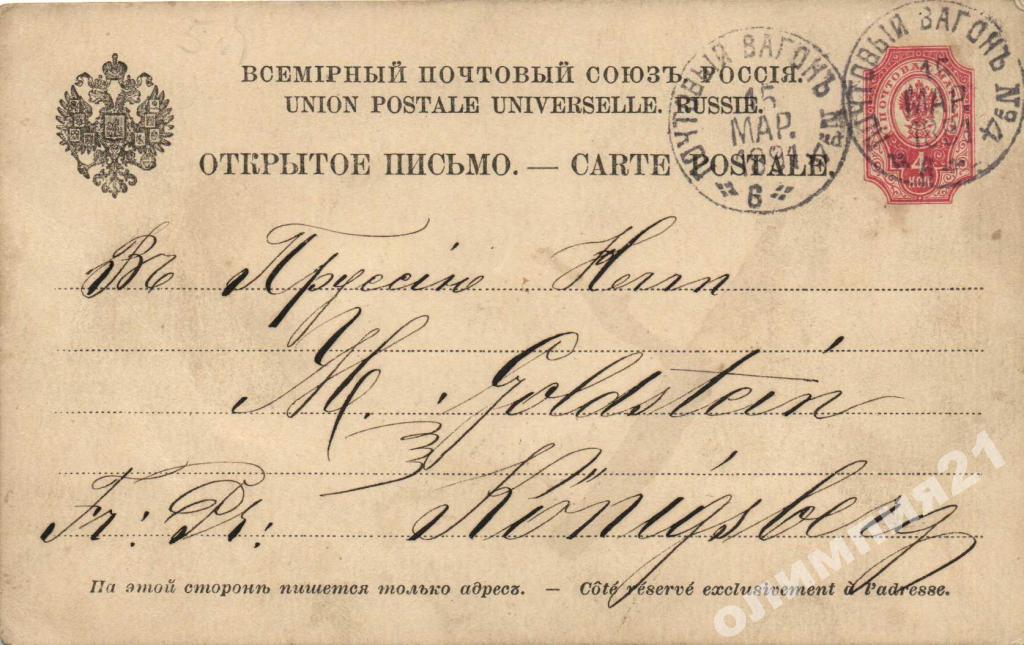 ВСЕМІРНЫЙ ПОЧТОВЫЙ СОЮЗЪ. РОССІЯ.
UNION POSTALE UNIVERSELLE. RUSSIE.
ОТКРЫТОЕ ПИСЬМО. — CARTE POSTALE.
ПОЧТОВЫЙ ВАГОНЪ №4
15
МАР.
1891
6
ПОЧТОВЫЙ ВАГОНЪ №4
15
МАР.
1891
ПОЧТОВАЯ МАРКА
4
КОП
Въ Пруссію Herrn
M. Goldstein
Fr: Pr: Königsberg
На этой сторонѣ пишется только адресъ. — Côté réservé exclusivement à l'adresse.
ОЛИМПИЯ21